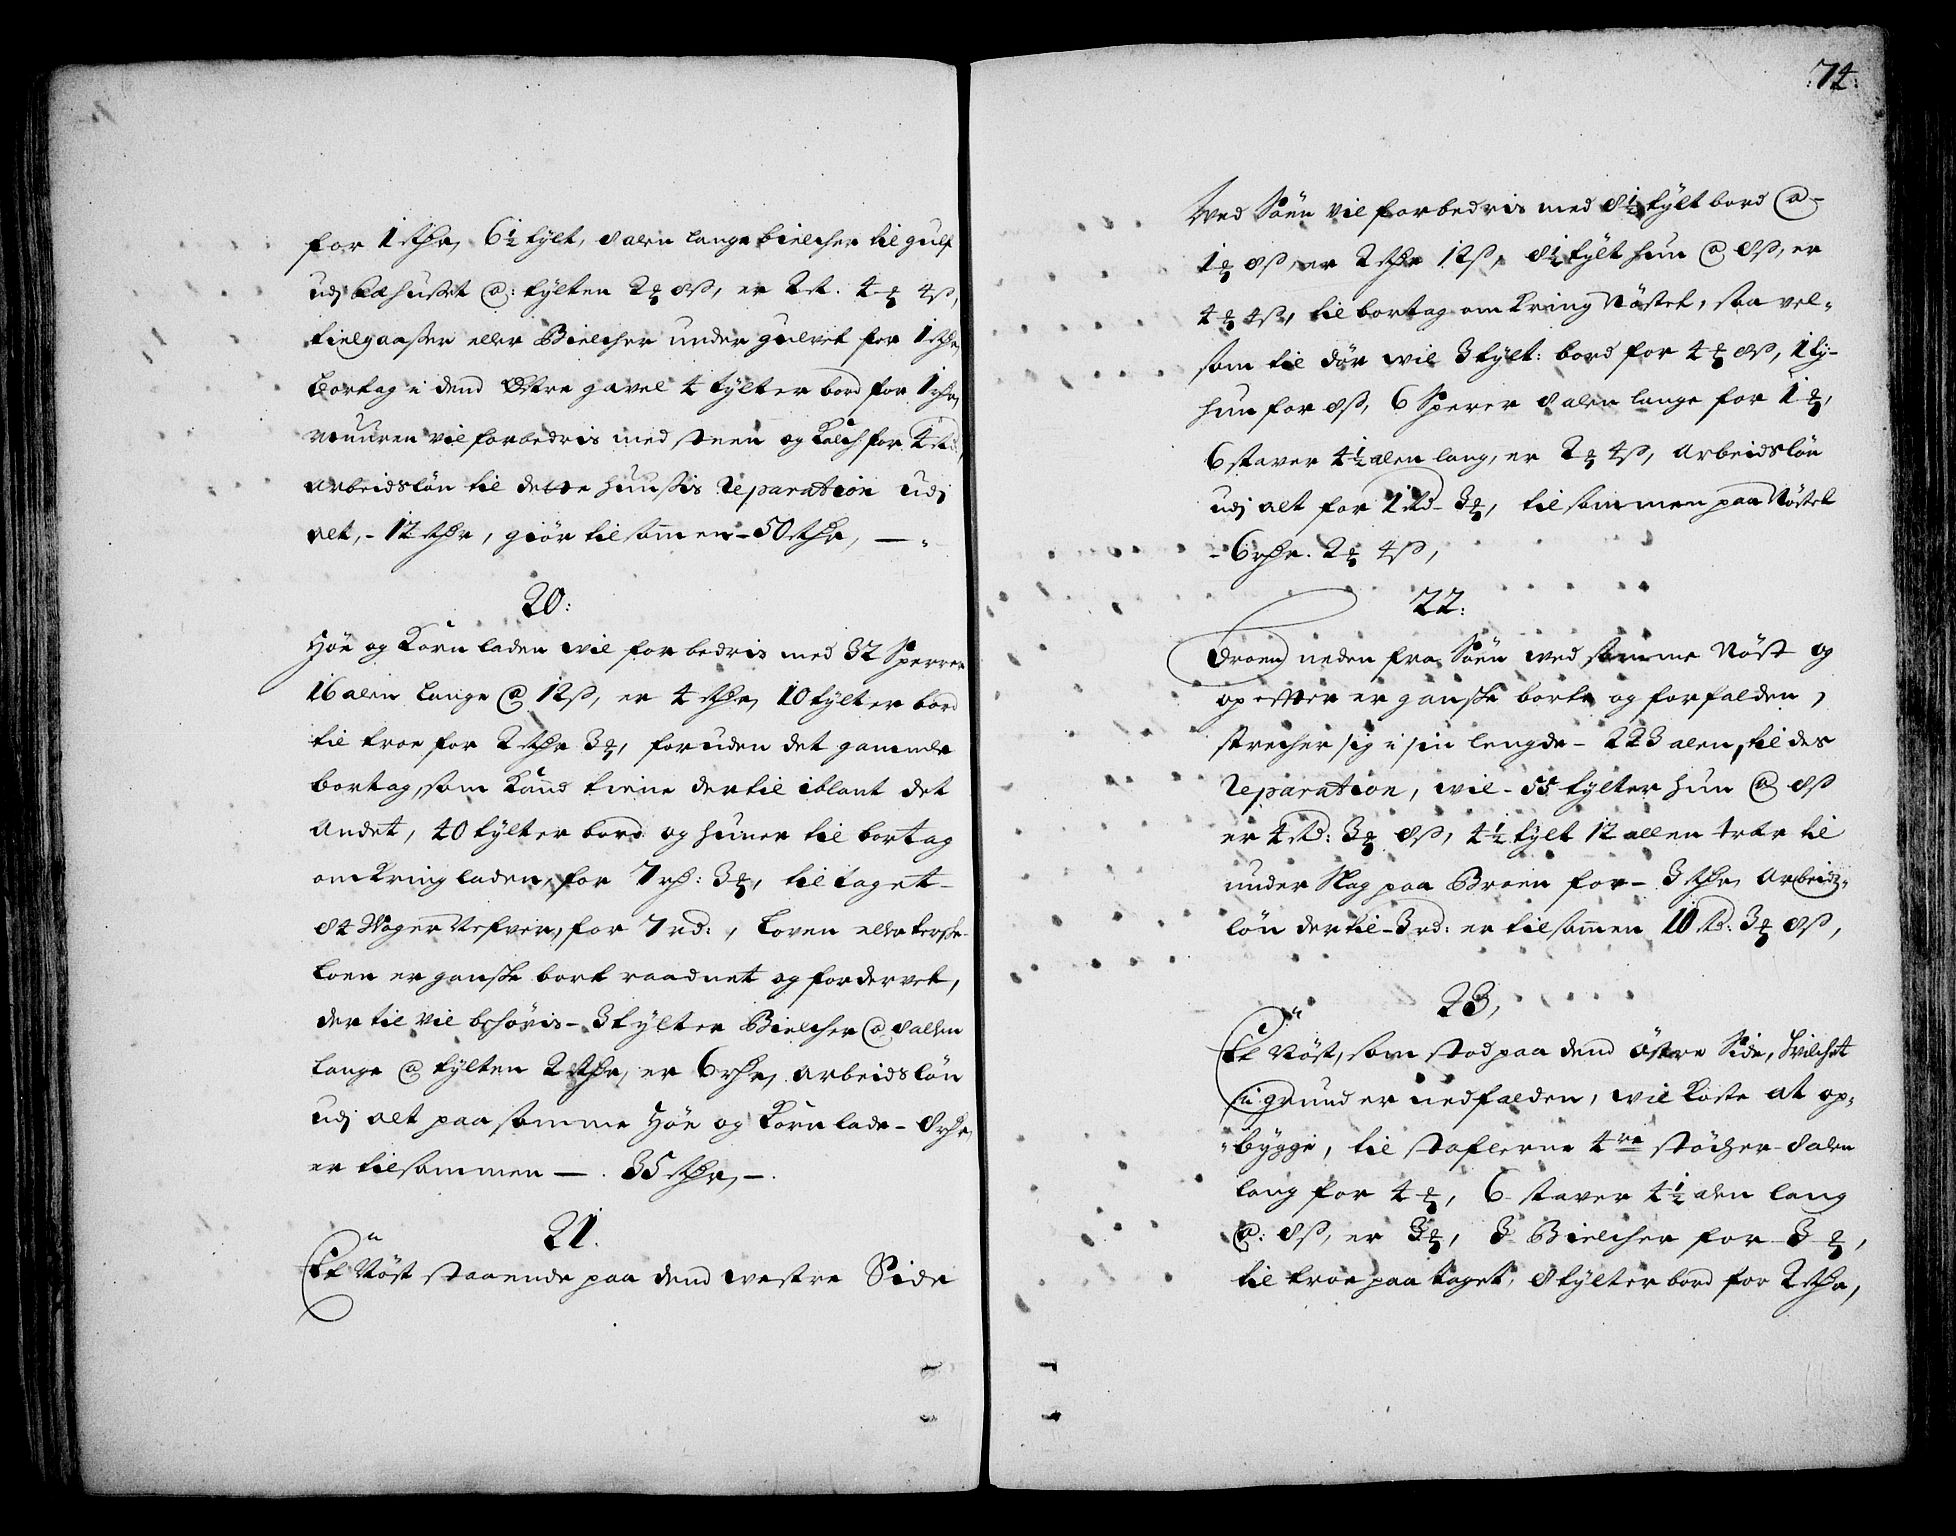 for 1 rdr, 6½ tylt, 8 alen lange bielcher til gulf
udj Fæhuset @: tylten 2 ort 8 ß, er 2 rd. 4 ort 4 ß,
tielgaasser eller Bielcher under gulvet for 1 rdr,
bortag i dend Østre gavel 4 tylter bord for 1 rdr,
Muuren vil forbedris med steen og Kalch for 4 rd:,
Arbeidsløn til dette huusis Reparation udj
alt, - 12 rdr, giør tilsam̄en - 50 rdr, —
20:
Høe og Kornladen wil forbedris med 32 Sperrer
16 alen lange @ 12 ß, er 4 rdr, 10 tylter bord
til troe for 2 rdr 3 ort, foruden det gamle
bortag, som Kand tiene dertil iblant det
Andet, 40 tylter bord og huner til bortag
omkring laden, for 7 rd: 3 ort, til taget
84 Woger Nefver, for 7 rd:, Loren eller terske-
loen er ganske bort raadnet og fordervet,
der til vil behøvis - 3 tylter Bielcher @ 8 allen
lange @ tylten 2 rdr, er 6 rdr, Arbeidsløn
udj alt paa samme Høe og Kornlade - 8 rdr,
er tilsammen — . 35 rdr, — .
21.
Et Nøst staaende paa dend westre Side
74.
Wed Søen vil forbedris med 8½ tylt bord @ -
1 ort 8 ß, er 2 rdr 12 ß, 8½ tylt hun @ 8 ß, er
4 ort 4 ß, til bortag omkring Nøstet, saa vel-
som til dør wil 3 tylt: bord for 4 ort 8 ß, 1 ty-
hun for 8 ß, 6 Sperer 8 alen lange for 1 ort,
6 staver 4½ alen lang, er 2 ort 4 ß, Arbeidsløn
udj alt for 1 rd - 3 ort, tilsammen paa Nøstet
- 6 rdr. 2 ort 4 ß,
22.
Broen neden fra Søen wed samme Nøst og
op efter er ganske borte og forfalden,
strecher sig i sin lengde - 223 alen, til des
Reparation, wil - 55 tylter hun @ 8 ß
er 4 rd: 3 ort 8 ß, 4½ tylt 12 allen trær til
under Slag paa Broen for - 3 rdr, Arbeidz-
løn dertil - 3 rd: er tilsam̄en 10 rd: 3 ort 8 ß,
23,
Et Nøst, som stod paa dend østre Side, hvilchet
i grund er nedfalden, wil Koste at op-
bygge, til stoflerne 4re støcher 8 alen
lang for 4 ort, 6 staver 4½ alen lang
@: 8 ß, er 3 ort, 3 Bielcher for 3 ort,
til troe paa taget, 8 tylter bord for 2 rdr,